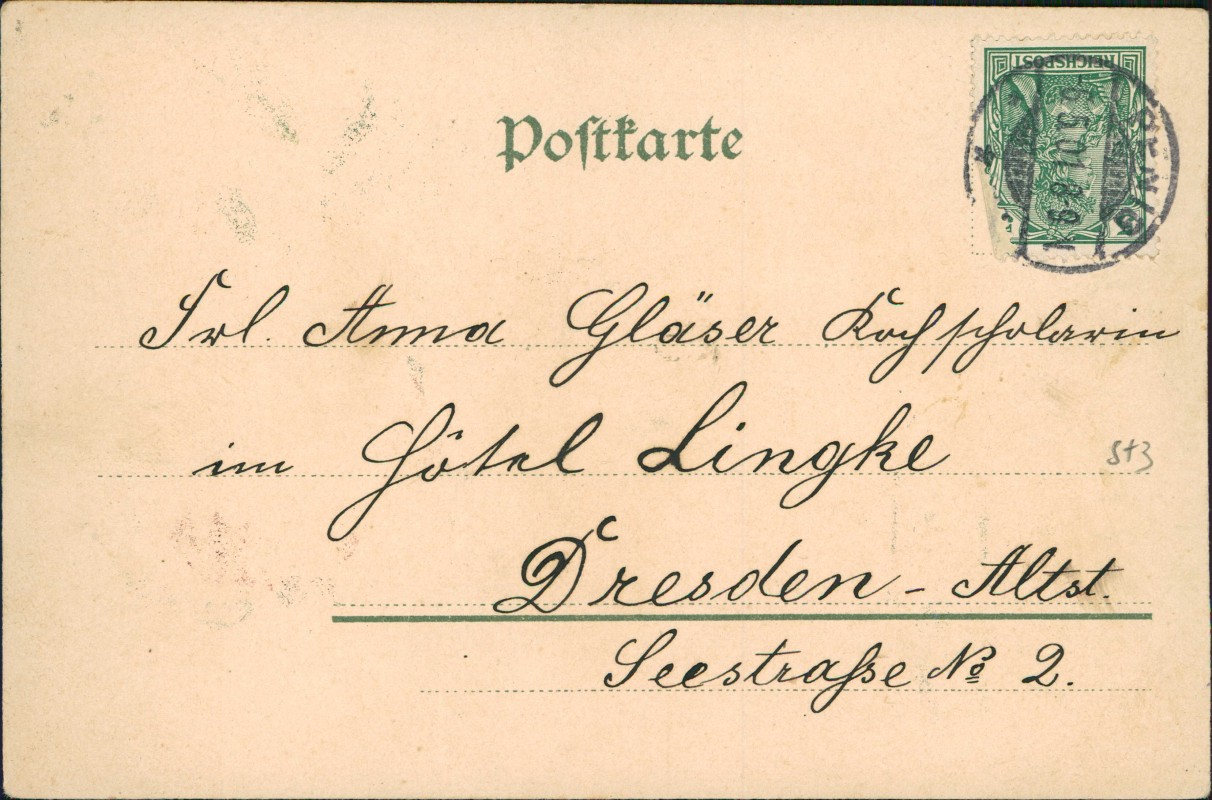 REICHSPOST
PENIG
Postkarte
Frl. Anna Gläser Kochscholarin
im Hôtel Lingke
Dresden - Altst.
Seestraße No 2.
St3